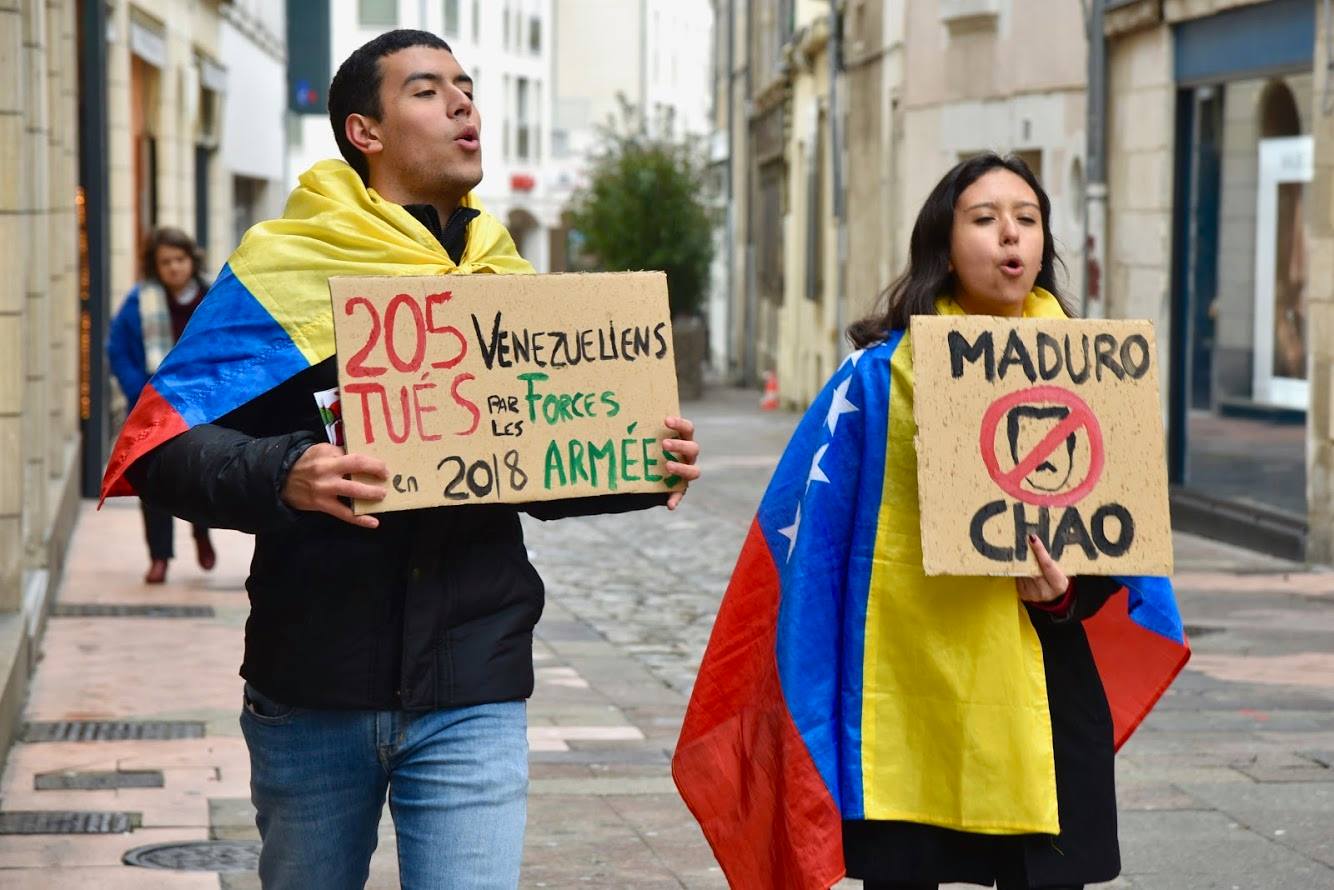 205 VENEZUELIENS
TUÉS PAR LES FORCES
en 2018 ARMÉES
MADURO
CHAO